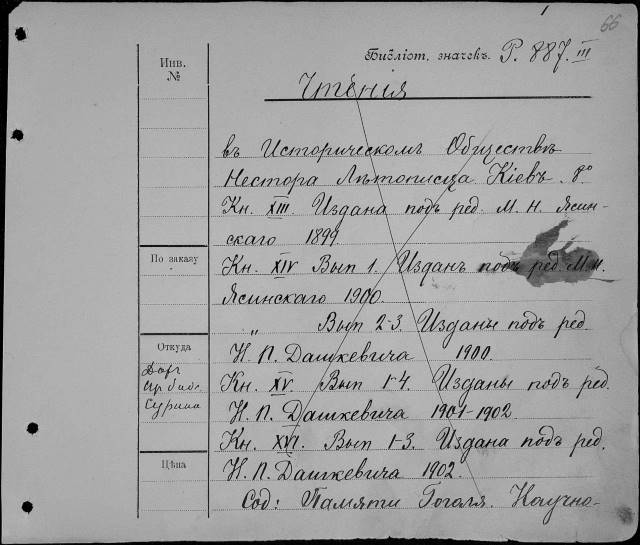 66
Библіот. значекъ. P. 887. III
Чтенія
въ Историческомъ Обществѣ
Нестора Лѣтописца Кіевъ. 8º
Кн. XIII. Издана подъ ред. М. Н. Ясин-
скаго 1899.
Кн. XIV Вып 1. Изданъ подъ ред. М. Н.
Ясинскаго 1900.
„ Вып 2-3. Изданы подъ ред.
Н. П. Дашкевича 1900.
Кн. XV. Вып 1-4. Изданы подъ ред.
Н. П. Дашкевича 1901-1902.
Кн. XVI. Вып 1-3. Издана подъ ред.
Н. П. Дашкевича 1902.
Сод: Памяти Гоголя. Научно-
Инв.
№
По заказу
Откуда
Цѣна